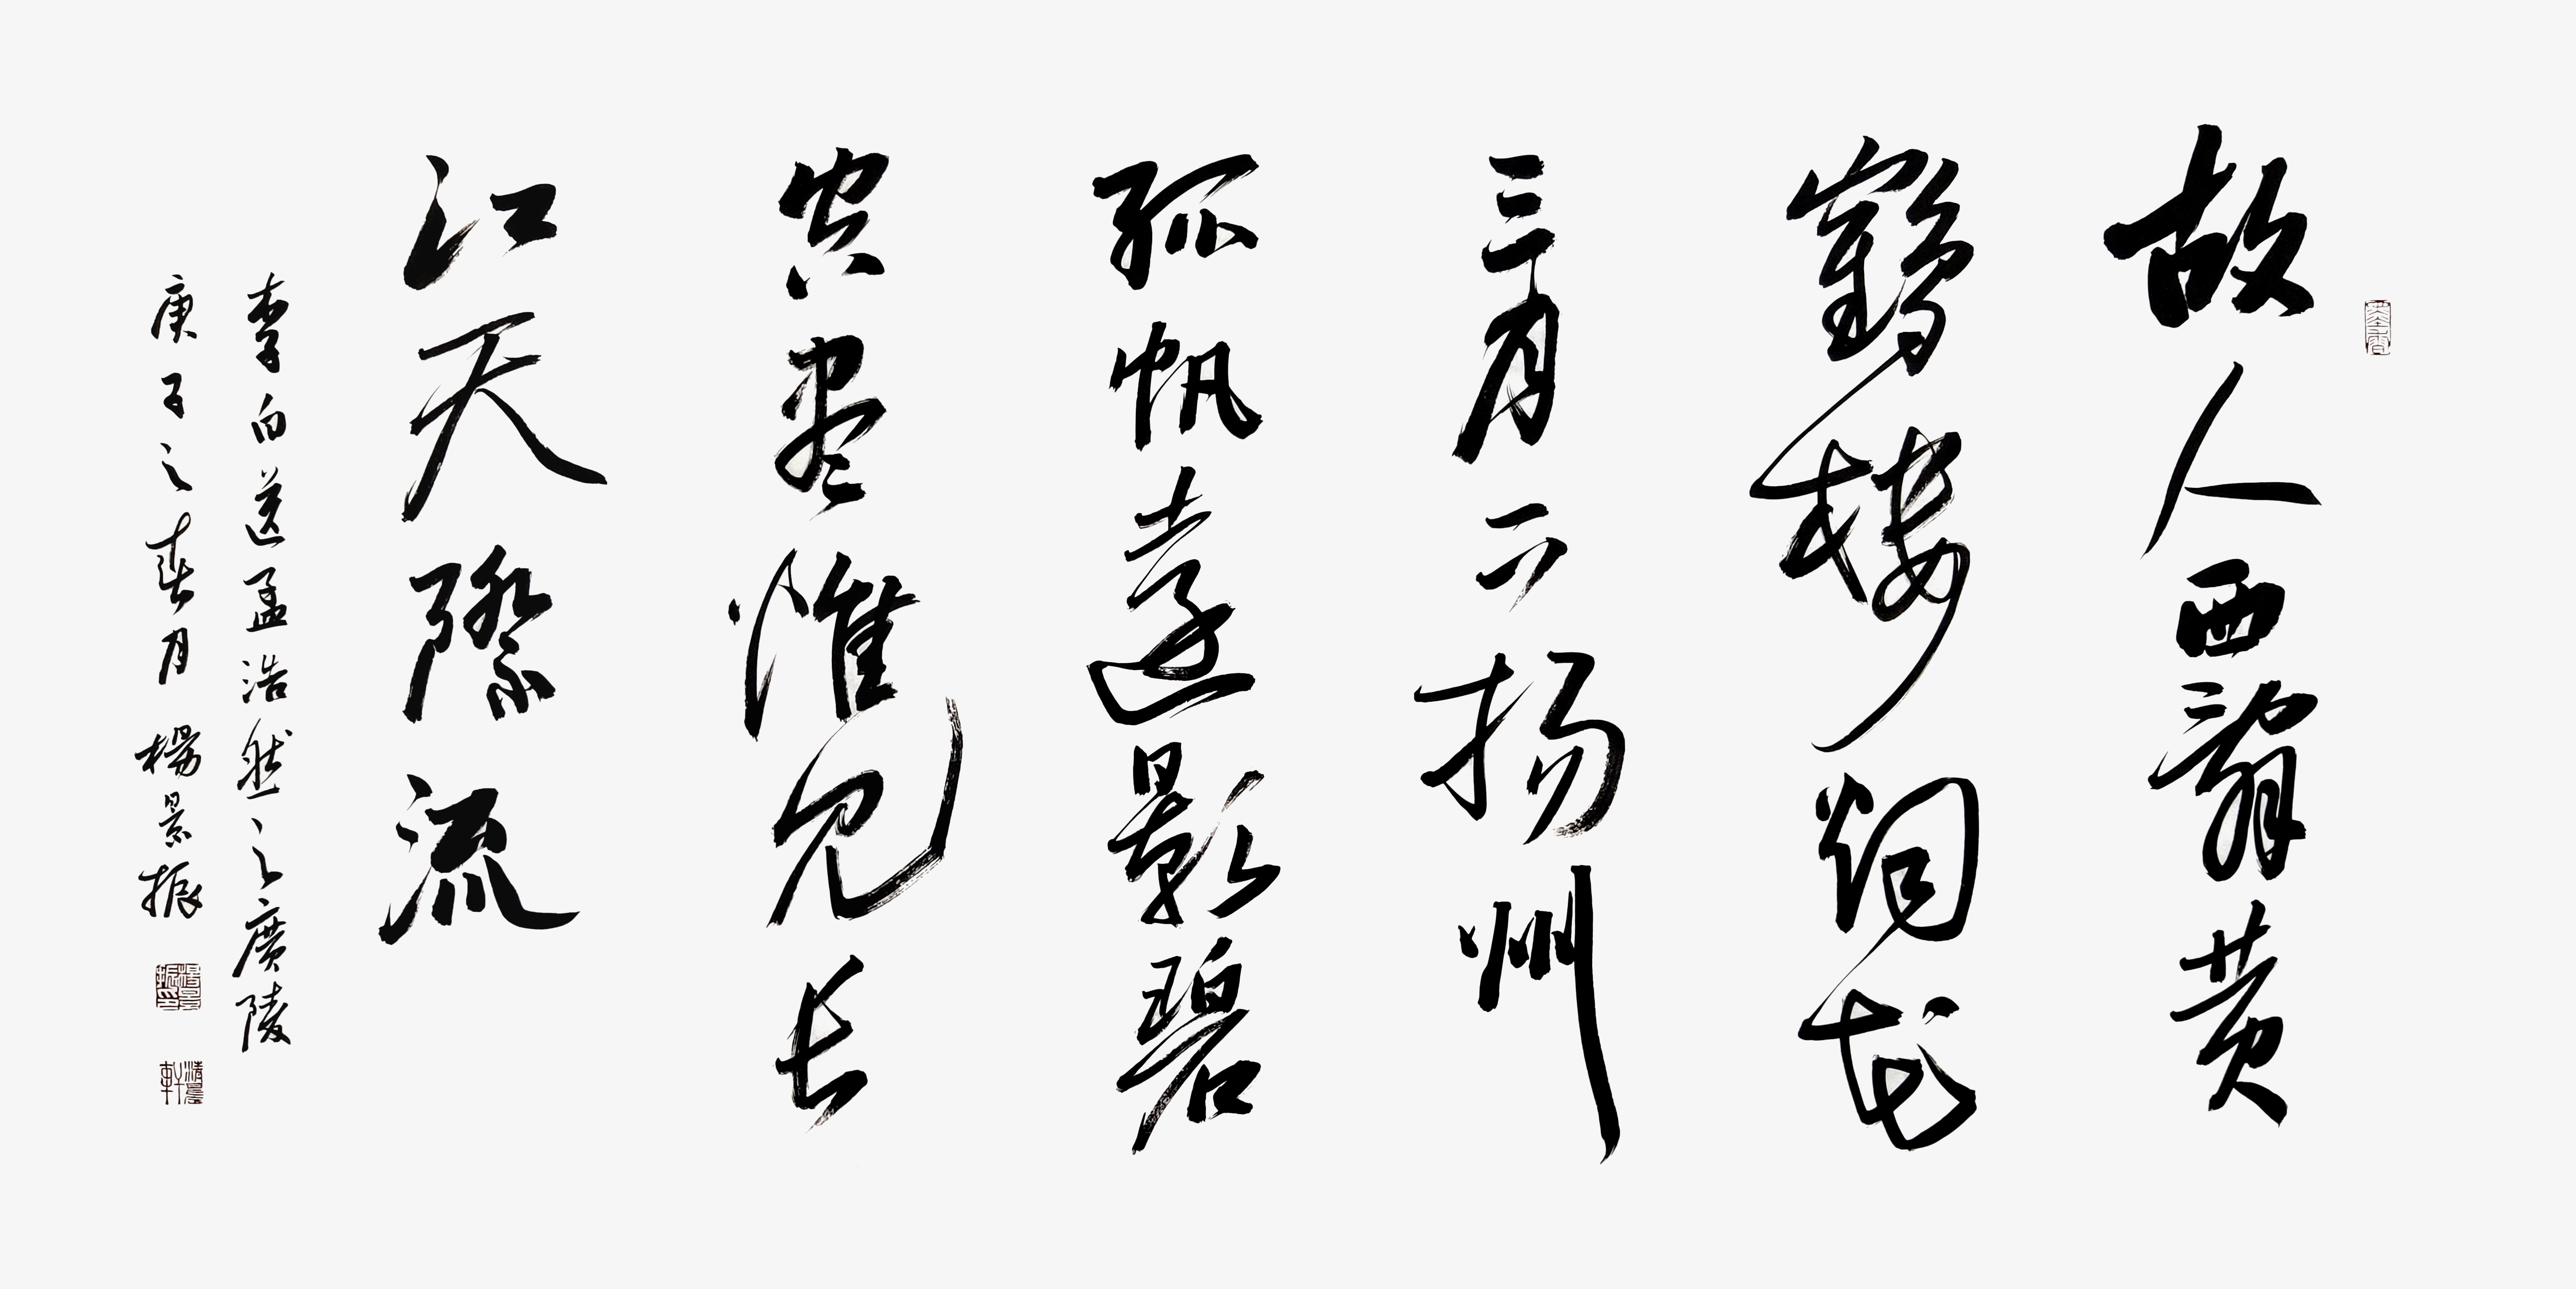 故人西辭黄
鶴樓烟花
三月下扬州
孤帆遠影碧
空尽惟见长
江天際流
李白送孟浩然之廣陵
庚子之春月 楊景振
楊景振印